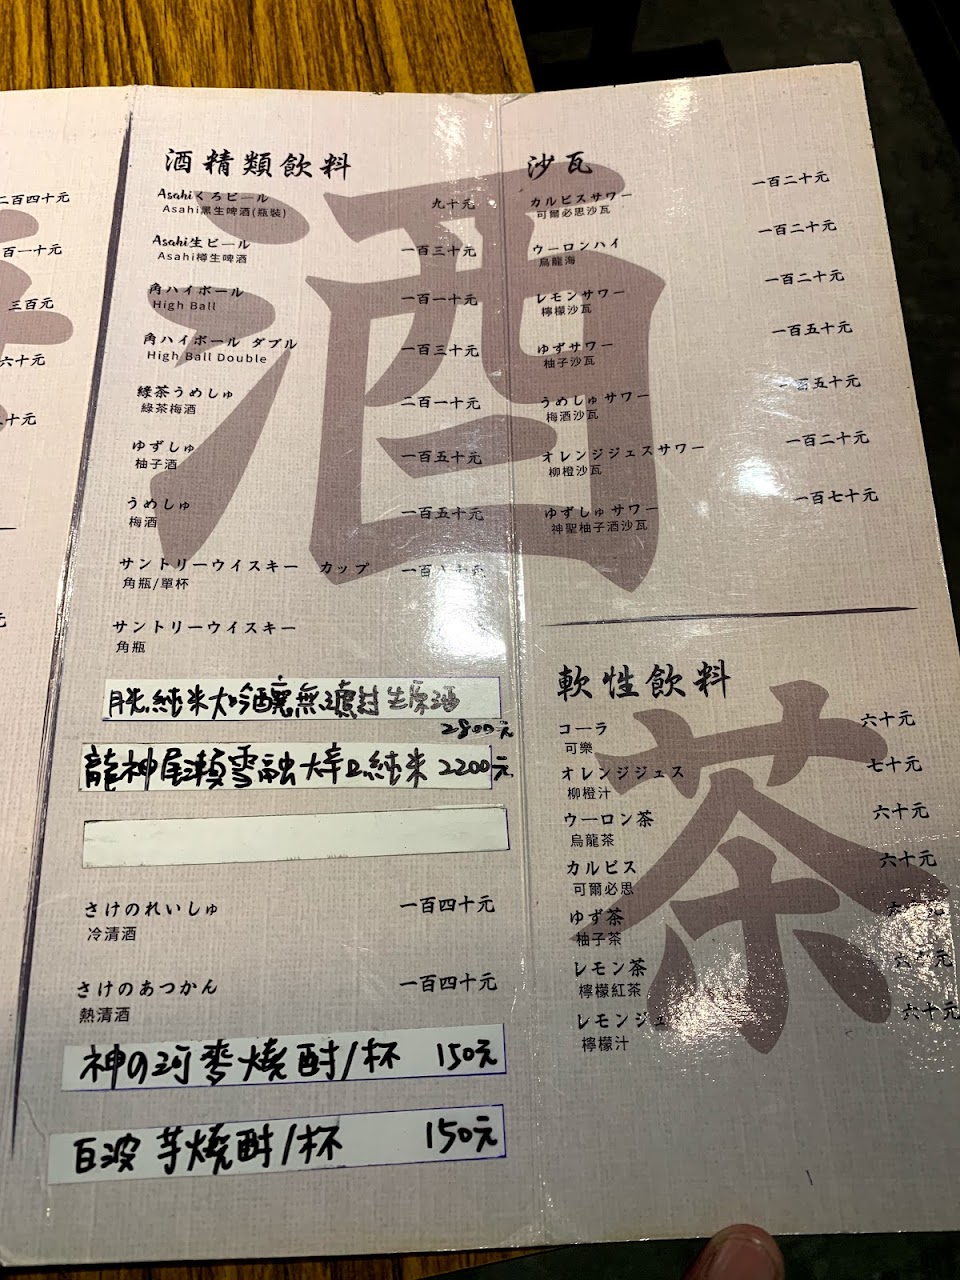 二百四十元
百一十元
三百元
六十元
十元
元
酒精類飲料
Asahiくろビール 九十元
Asahi黑生啤酒(瓶裝)
Asahi生ビール 一百三十元
Asahi樽生啤酒
角ハイボール 一百一十元
High Ball
角ハイボール ダブル 一百三十元
High Ball Double
緑茶うめしゅ 二百一十元
綠茶梅酒
ゆずしゅ 一百五十元
柚子酒
うめしゅ 一百五十元
梅酒
サントリーウイスキー カップ 一百 十元
角瓶/單杯
サントリーウイスキー
角瓶
純米大吟釀無濾過生原酒
2800元
龍神尾瀬雪融 純米 2200元
さけのれいしゅ 一百四十元
冷清酒
さけのあつかん 一百四十元
熱清酒
神の河麥燒酎/杯 150元
白波 芋燒酎/杯 150元
酒
沙瓦
カルピスサワー 一百二十元
可爾必思沙瓦
ウーロンハイ 一百二十元
烏龍海
レモンサワー 一百二十元
檸檬沙瓦
ゆずサワー 一百五十元
柚子沙瓦
うめしゅサワー 一百五十元
梅酒沙瓦
オレンジジェスサワー 一百二十元
柳橙沙瓦
ゆずしゅサワー 一百七十元
神聖柚子酒沙瓦
軟性飲料
コーラ 六十元
可樂
オレンジジェス 七十元
柳橙汁
ウーロン茶 六十元
烏龍茶
カルピス 六十元
可爾必思
ゆず茶 六十元
柚子茶
レモン茶 六十元
檸檬紅茶
レモンジュ 六十元
檸檬汁
茶